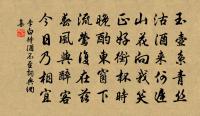 玉壺系青絲
沽酒來何遲
山花向我笑
正好銜杯時
晚酌東窗下
流鶯復在茲
春風與醉客
今日乃相宜
李白待酒不至詞典網
集